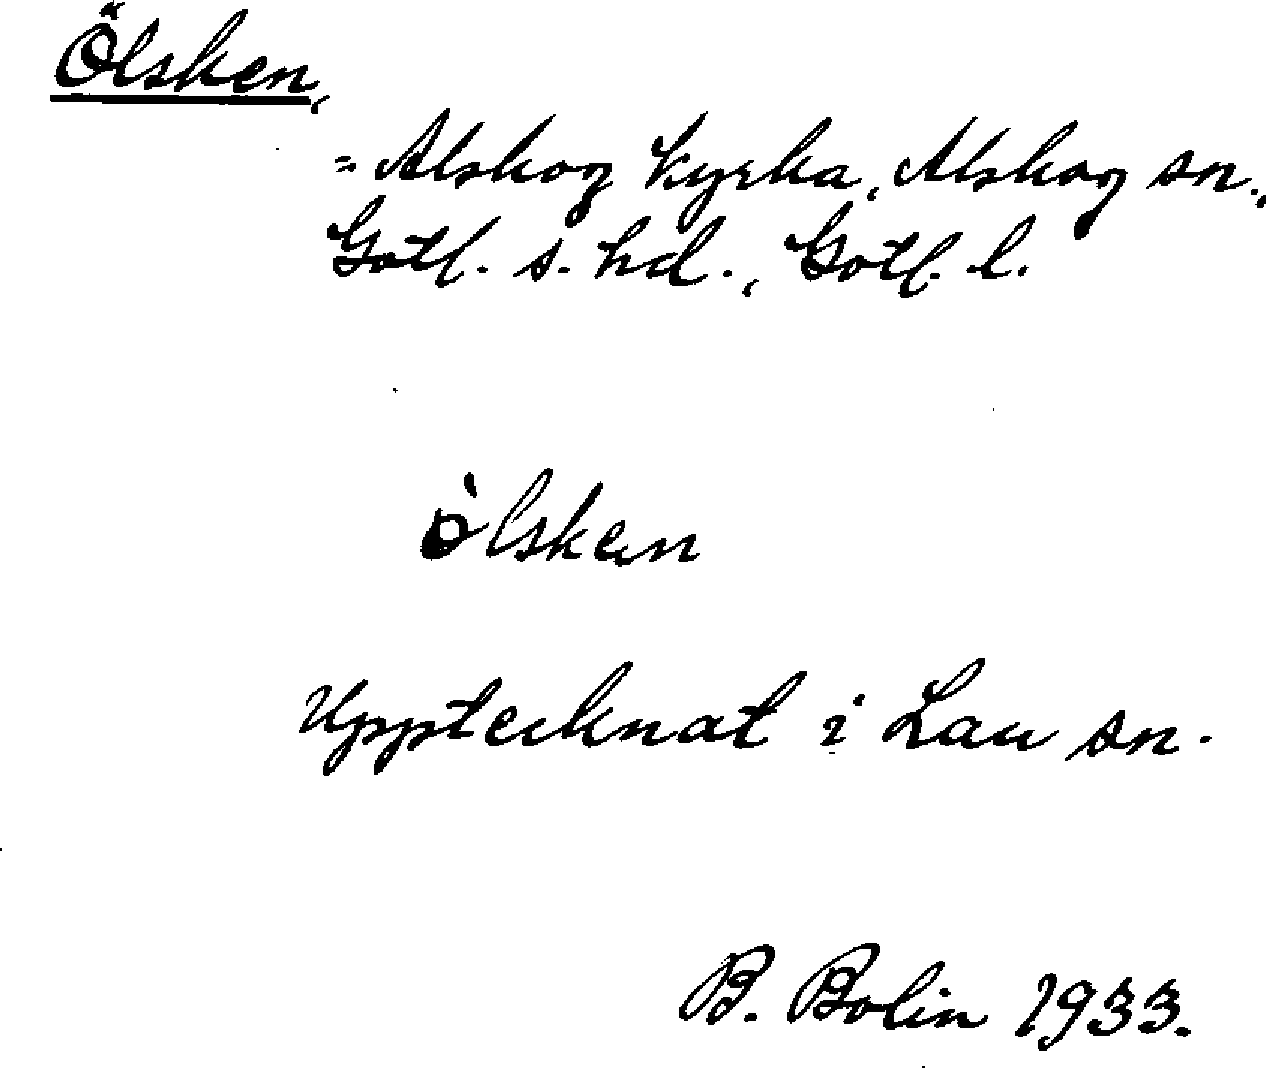 Ölsken,
= Alskog kyrka, Alskog sn.,
Gotl. s. hd., Gotl. l.
òlsken
Upptecknat i Lau sn.
B. Bolin 1933.